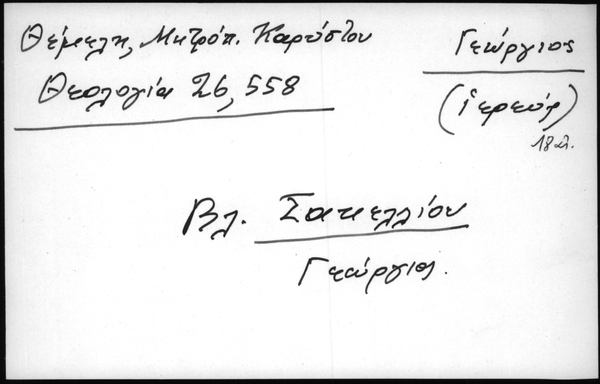 Θέμελη, Μητρόπ. Καρύστου
Θεολογία 26, 558
Γεώργιος
(ἱερεύς)
18 αἰ.
Βλ. Σακελλίου
Γεώργιος.